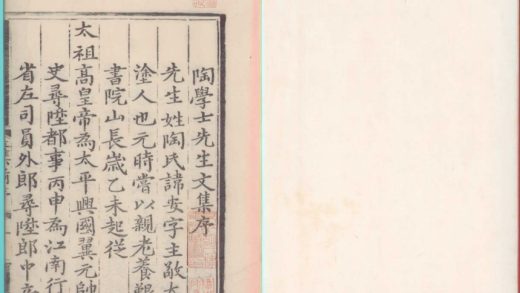 陶學士先生文集序
先生姓陶氏諱安字主敬
塗人也元時嘗以親老養
書院山長歲乙未起從
太祖髙皇帝為太平興國翼元帥
史尋陞都事丙申為江南行
省左司員外郎尋陞郎中